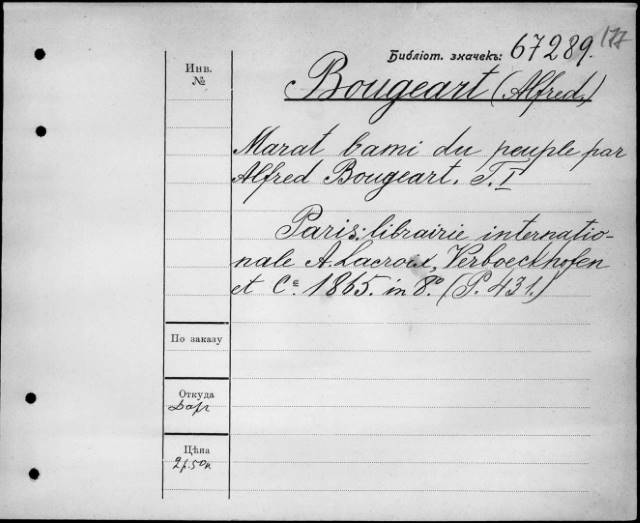 177
Библіот. значекъ: 67289.
Инв.
№
Bougeart (Alfred.)
Marat l'ami du peuple par
Alfred Bougeart. T. I
Paris: librairie internatio-
nale A. Lacroix, Verboeckhofen
et Cᵉ. 1865. in 8º. (P. 431.)
По заказу
Откуда
Дар
Цѣна
2р.50к